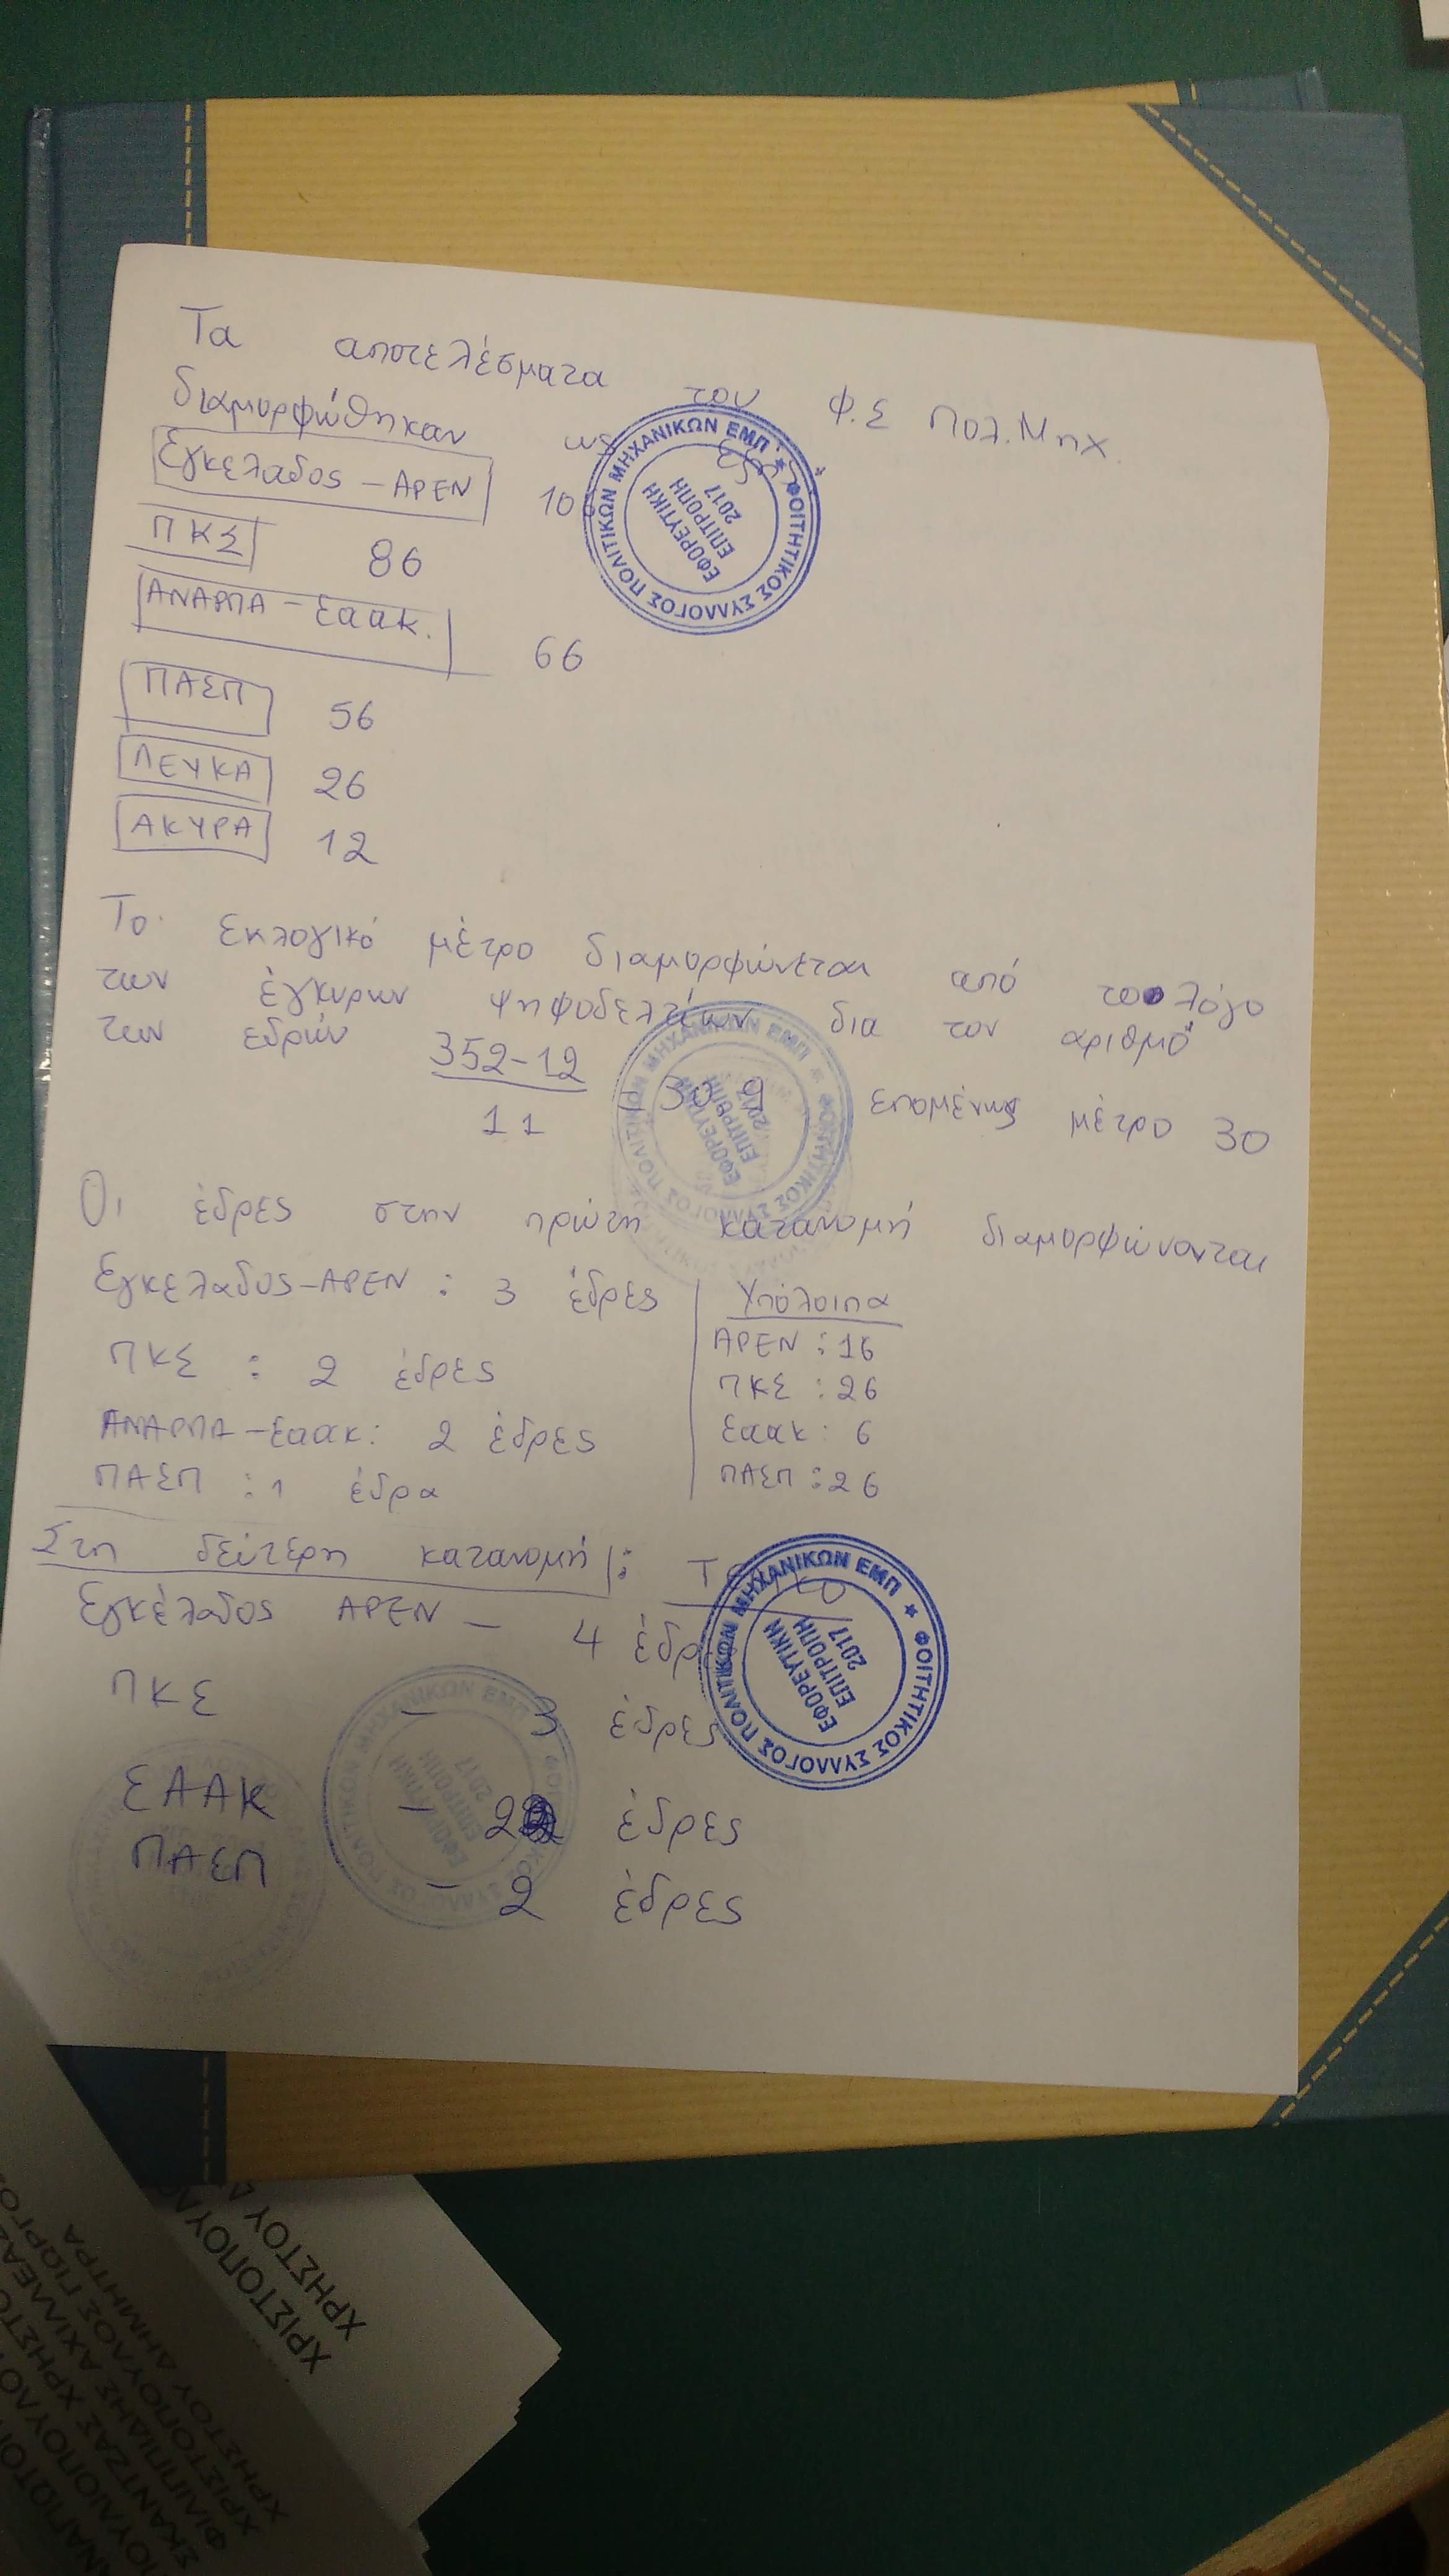 Τα αποτελέσματα του Φ.Σ Πολ.Μηχ.
διαμορφώθηκαν ως εξής
Εγκελαδος - ΑΡΕΝ 106
ΠΚΣ 86
ΑΝΑΡΠΑ - Εαακ. 66
ΠΑΣΠ 56
ΛΕΥΚΑ 26
ΑΚΥΡΑ 12
Το εκλογικό μέτρο διαμορφώνεται από το λόγο
των έγκυρων ψηφοδελτίων δια τον αριθμό
των εδρών 352-12 / 11 = 30,9 επομένως μέτρο 30
Οι έδρες στην πρώτη κατανομή διαμορφώνονται
Εγκελαδος-ΑΡΕΝ : 3 έδρες
ΠΚΣ : 2 έδρες
ΑΝΑΡΠΑ-Εαακ: 2 έδρες
ΠΑΣΠ : 1 έδρα
Υπόλοιπα
ΑΡΕΝ : 16
ΠΚΣ : 26
Εαακ : 6
ΠΑΣΠ : 26
Στη δεύτερη κατανομή : Τελικο
Εγκέλαδος ΑΡΕΝ - 4 έδρες
ΠΚΣ - 3 έδρες
ΕΑΑΚ - 2 έδρες
ΠΑΣΠ - 2 έδρες
ΦΟΙΤΗΤΙΚΟΣ ΣΥΛΛΟΓΟΣ ΠΟΛΙΤΙΚΩΝ ΜΗΧΑΝΙΚΩΝ ΕΜΠ
ΕΦΟΡΕΥΤΙΚΗ
ΕΠΙΤΡΟΠΗ
2017
ΦΟΙΤΗΤΙΚΟΣ ΣΥΛΛΟΓΟΣ ΠΟΛΙΤΙΚΩΝ ΜΗΧΑΝΙΚΩΝ ΕΜΠ
ΕΦΟΡΕΥΤΙΚΗ
ΕΠΙΤΡΟΠΗ
2017
ΦΟΙΤΗΤΙΚΟΣ ΣΥΛΛΟΓΟΣ ΠΟΛΙΤΙΚΩΝ ΜΗΧΑΝΙΚΩΝ ΕΜΠ
ΕΦΟΡΕΥΤΙΚΗ
ΕΠΙΤΡΟΠΗ
2017
ΦΟΙΤΗΤΙΚΟΣ ΣΥΛΛΟΓΟΣ ΠΟΛΙΤΙΚΩΝ ΜΗΧΑΝΙΚΩΝ ΕΜΠ
ΕΦΟΡΕΥΤΙΚΗ
ΕΠΙΤΡΟΠΗ
2017
ΧΡΗΣΤΟΥ
ΔΗΜΗΤΡΑ